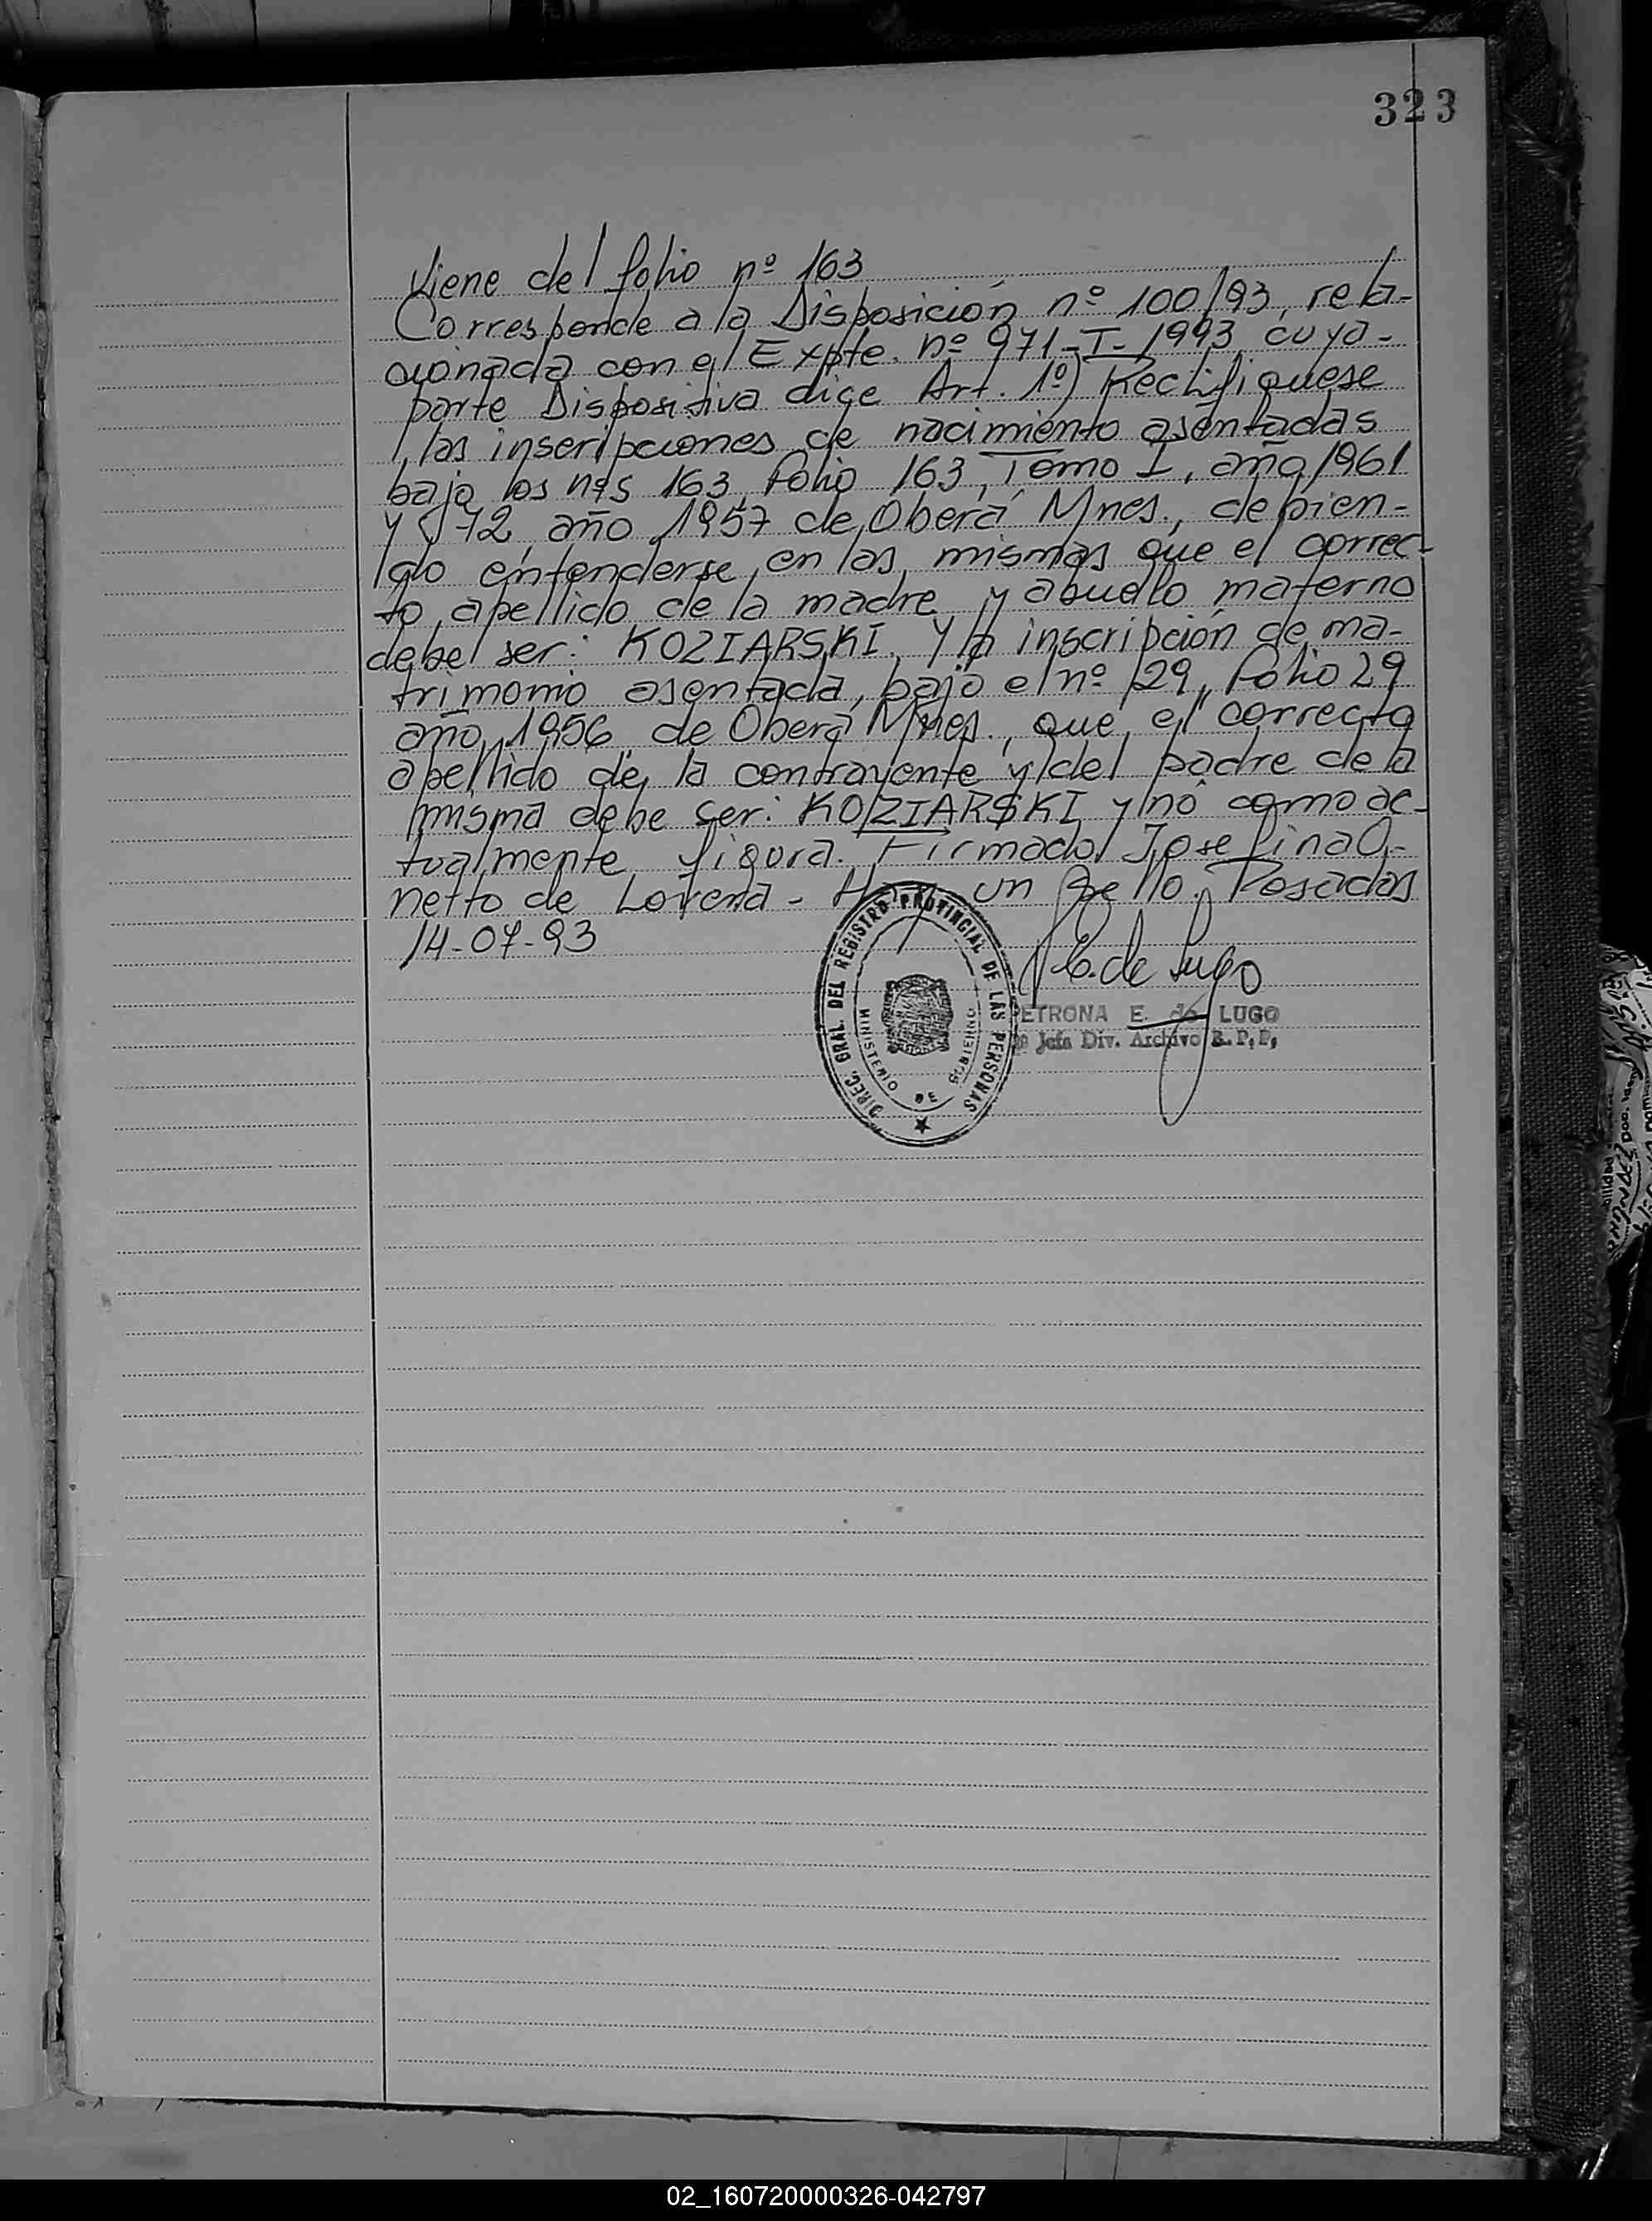 323
Viene del folio nº 163
Corresponde a la Disposición nº 100/93, rela-
cionada con el Expte. nº 971-I-1993 cuya-
parte Dispositiva dice Art. 1º) Rectifiquese
las inscripciones de nacimiento asentadas
bajo los nºs 163, folio 163, Tomo I, año 1961
y 572, año 1957 de Oberá Mnes., debien-
do entenderse en las mismas que el correc-
to apellido de la madre y abuelo materno
debe ser: KOZIARSKI. Y la inscripción de ma-
trimonio asentada bajo el nº 29, folio 29
año 1956 de Oberá Mnes., que el correcto
apellido de la contrayente y del padre de la
misma debe ser: KOZIARSKI y nó como ac-
tualmente figura. Firmado Josefina O.
netto de Lovera - Hay un Sello. Posadas
14-07-93
P. E. de Lugo
PETRONA E. de LUGO
Jefa Div. Archivo R. P. P.
DIREC. GRAL. DEL REGISTRO PROVINCIAL DE LAS PERSONAS
MINISTERIO DE GOBIERNO
02_160720000326-042797